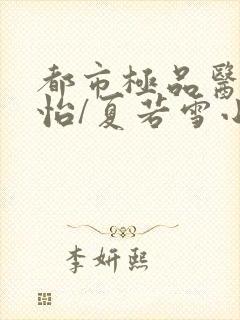 都市極品醫
怡/夏若雪小
李妍熙